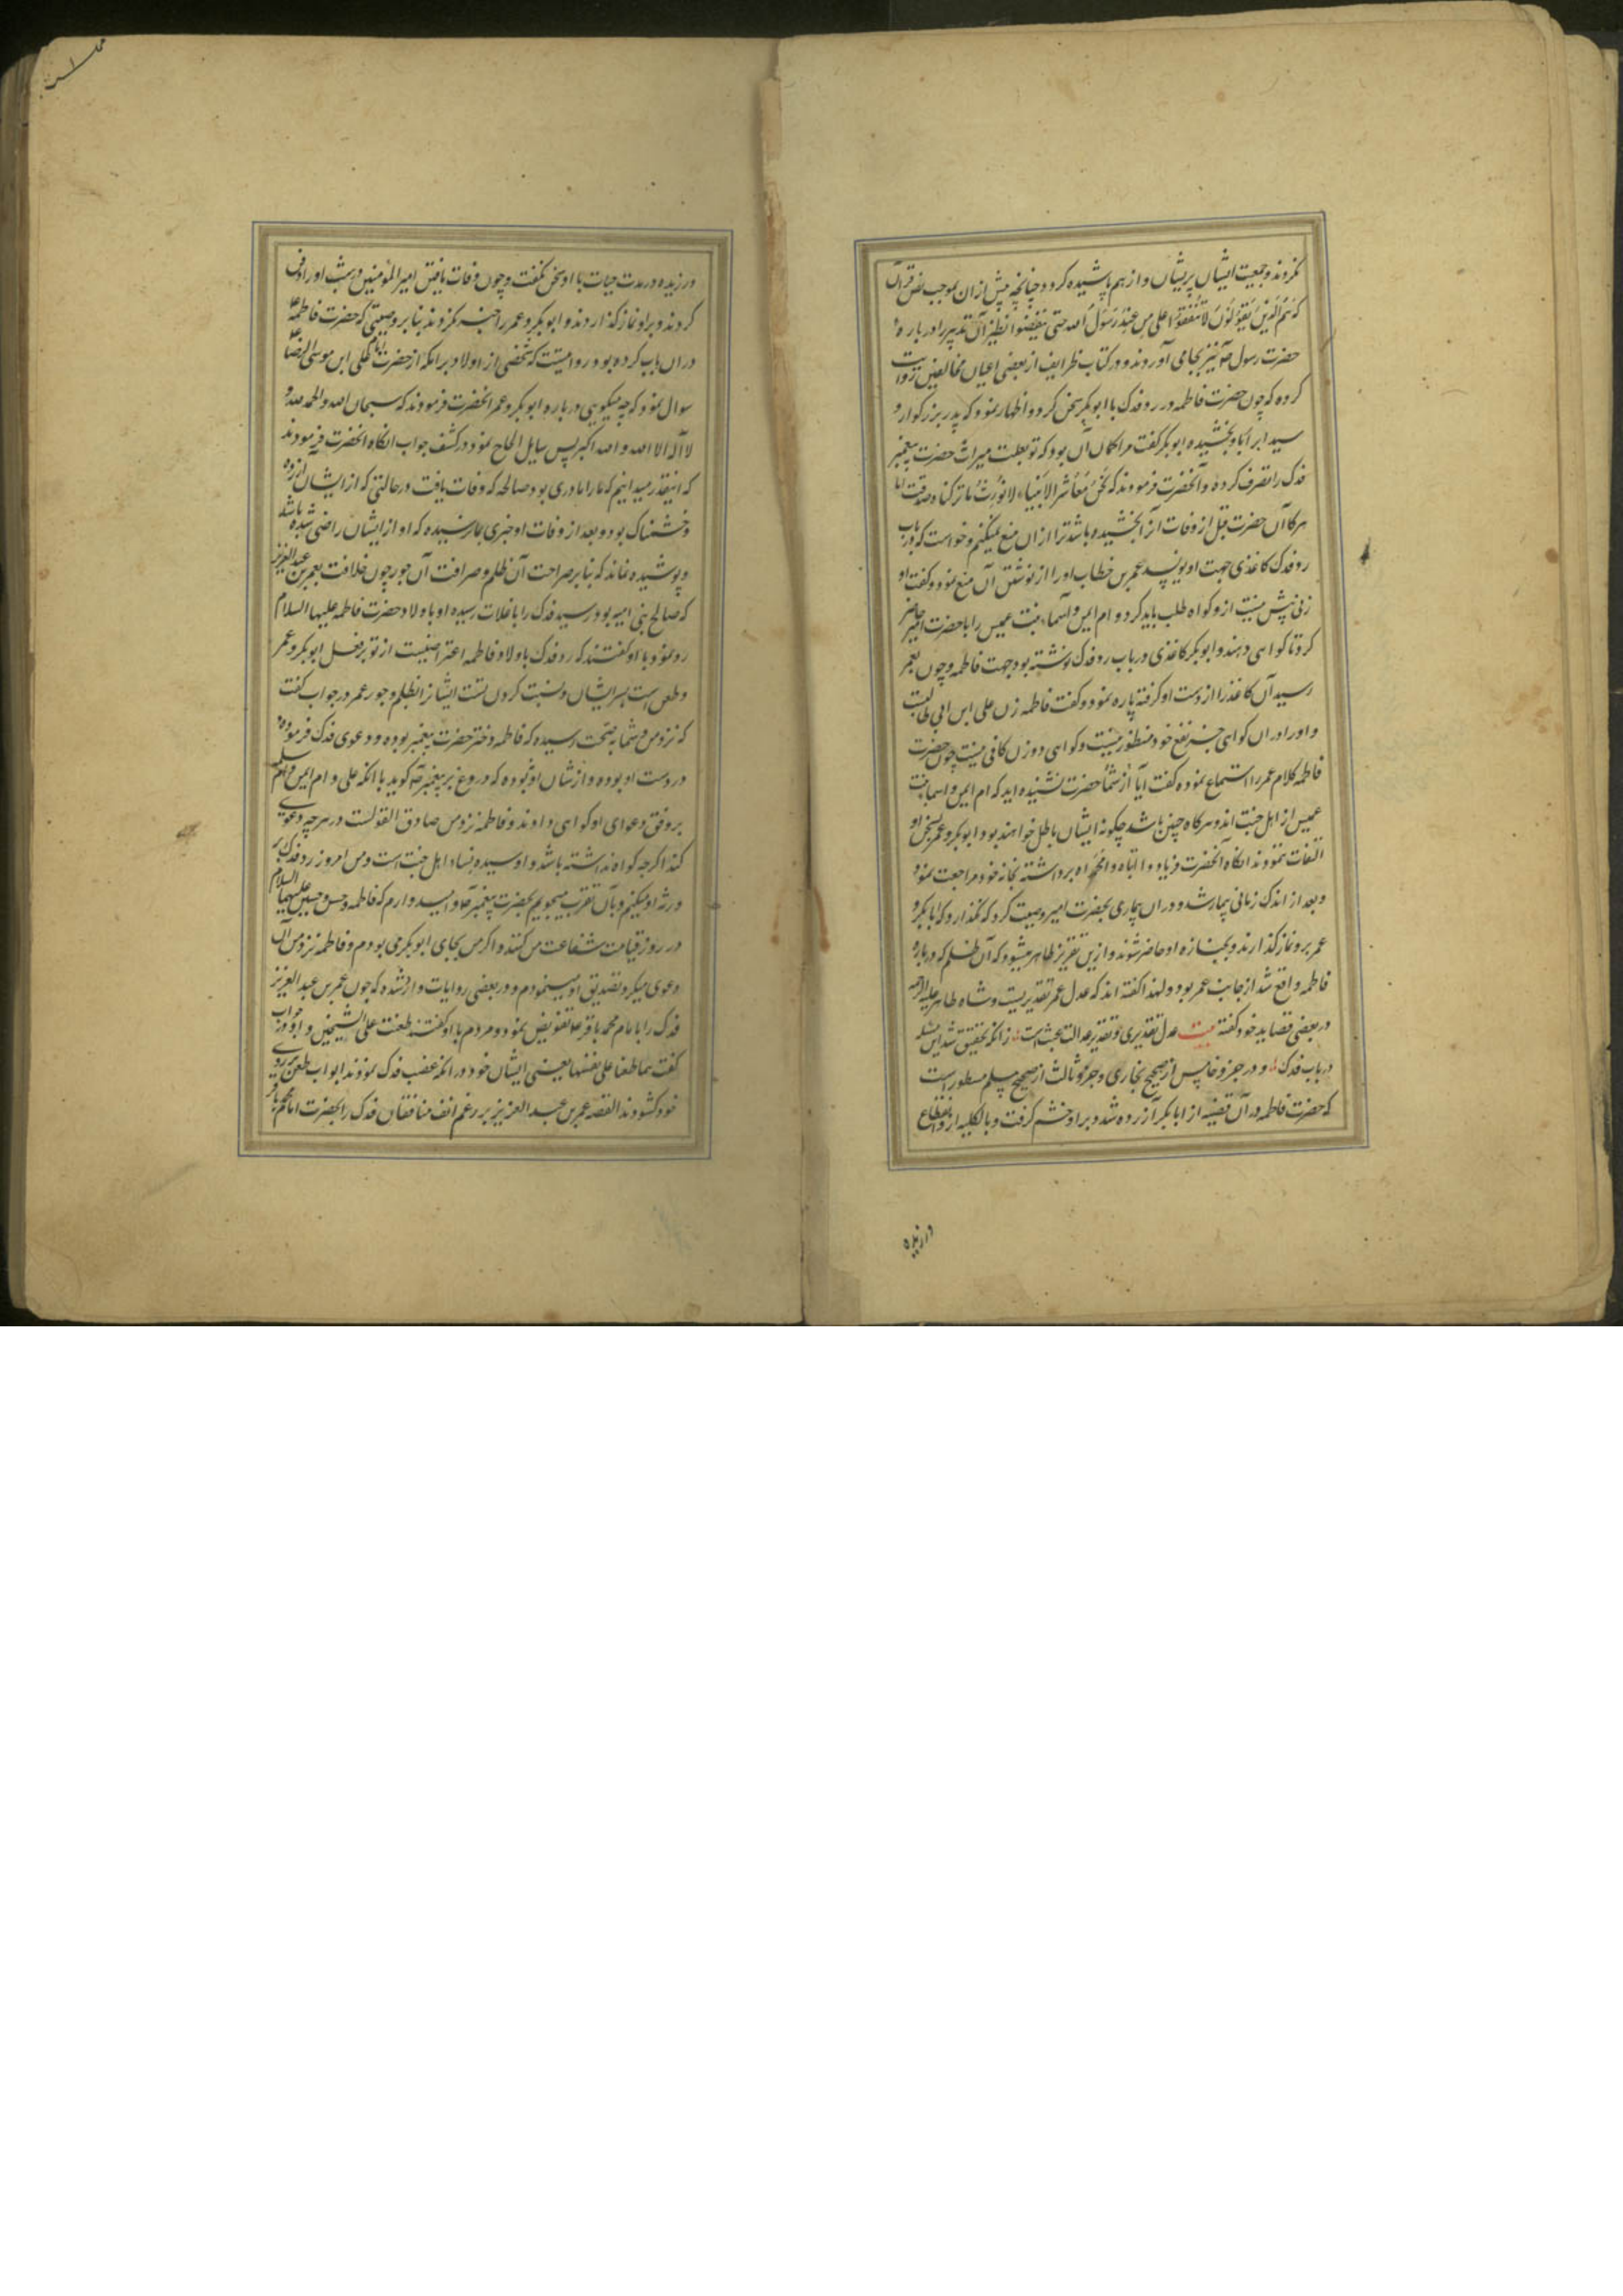 نکروند و جمعیت ایشان پریشان و از هم پاشیده کردد چنانچه پیش ازان بموجب نص قرآن
که هم الذین یقولون لا تنفقوا علی من عند رسول الله حتی ینفضوا نظیر آن تدبیر را درباره
حضرت رسول ص نیز بجای آوردند و در کتاب طرایف از بعضی اعیان مخالفین روایت
کرده که چون حضرت فاطمه در رد فدک با ابو بکر سخن کرد و اظهار نمود که پدر بزرکوار و
سید ابرار بما بخشیده ابو بکر کفت مرا کمان آن بود که تو بعلت میراث حضرت پیغمبر
فدک را تصرف کرده و آنحضرت فرمودند که نحن معاشر الانبیاء لا نورث ما ترکناه صدقت اما
هرکاه آن حضرت قبل از وفات آنرا بخشیده باشد ترا ازان منع نمیکنیم و خواست که در باب
رد فدک کاغذی جهت او بنویسد عمر بن خطاب او را از نوشتن آن منع نمود و کفت او
زنی بیش نیست ازو کواه طلب باید کرد و ام ایمن و اسماء بنت عمیس را با حضرت امیر حاضر
کرد تا کواهی دهند و ابو بکر کاغذی در باب رد فدک نوشته بود جهت فاطمه و چون بعمر
رسید آن کاغذ را از دست او کرفته پاره نمود و کفت فاطمه زن علی ابن ابی طالبست
و او را دران کواهی جز نفع خود منظور نیست و کواهی دو زن کافی نیست چون حضرت
فاطمه کلام عمر را استماع نموده کفت آیا از شما حضرت نشنیده اید که ام ایمن و اسما بنت
عمیس از اهل جنت اند و هرکاه چنین باشد چکونه ایشان باطل خواهند بود ابو بکر و عمر بسخن او
التفات ننمودند انکاه آنحضرت فریاد وا ابتاه و امحمداه برداشته بخانه خود مراجعت نمود
و بعد از اندک زمانی بیمار شد و دران بیماری بحضرت امیر وصیت کرد که نکذارد که ابا بکر و
عمر برو نماز کذارند و بجنازه او حاضر شوند و ازین تقریر ظاهر میشود که آن ظلم که درباره
فاطمه واقع شد از جانب عمر بود و لهذا کفته اند که عدل عمر تقدیریست و شاه طاهر علیه الرحمه
در بعضی قصاید خود کفته بیت عدل تقدیری و تقدیر عدالت عبث است زانکه تحقیق شد این مسئله
در باب فدک و در جزو خامس از صحیح بخاری و جزو ثالث از صحیح مسلم مسطور است
که حضرت فاطمه در آن قضیه از ابا بکر آزرده شد و بر او خشم کرفت و بالکلیه ازو انقطاع
ورزیده
ورزیده در مدت حیات با او سخن نکفت و چون وفات یافتن امیر المؤمنین در شب او را دفن
کردند و براو نماز کذاردند و ابو بکر و عمر را خبر نکردند بنا بر وصیتی که حضرت فاطمه ع
دران باب کرده بود و روایتست که شخصی از اولاد برامکه از حضرت امام علی ابن موسی الرضا ع
سوال نمود که چه میکویی درباره ابو بکر و عمر انحضرت فرمودند که سبحان الله و الحمد لله و
لا اله الا الله و الله اکبر پس سایل الحاح نمود در کشف جواب انکاه انحضرت فرمودند
که اینقدر میدانیم که ما را مادری بود صالحه که وفات یافت در حالتی که از ایشان آزرده
و خشمناک بود و بعد از وفات او خبری بما نرسیده که او از ایشان راضی شده باشد
و پوشیده نماند که بنا بر صراحت آن ظلم و صرافت آن جور چون خلافت بعمر بن عبد العزیز
که صالح بنی امیه بود رسید فدک را با غلات رسیده او باولاد حضرت فاطمه علیها السلام
رد نمود با او کفتند که رد فدک باولاد فاطمه اعتراضیست از تو بر فعل ابو بکر و عمر
و طعن است بر ایشان و نسبت کردن تست ایشانرا بظلم و جور عمر در جواب کفت
که نزد من و شما بصحت رسیده که فاطمه دختر حضرت پیغمبر بوده و دعوی فدک فرموده
در دست او بوده و از شان او نبوده که دروغ بر پیغمبر ص کوید با انکه علی و ام ایمن و ام سلمه
بر وفق دعوای او کواهی دادند و فاطمه نزد من صادق القولست در هر چه دعوی
کند اکر چه کواه نداشته باشد و او سیده نساء اهل جنت است و من امروز رد فدک بر
ورثه او میکنم و بآن تقرب میجویم بحضرت پیغمبر ص و امیدوارم که فاطمه و حسن و حسین علیهما السلام
در روز قیامت شفاعت من کنند و اکر من بجای ابو بکر می بودم و فاطمه نزد من آن
دعوی میکرد تصدیق او مینمودم و در بعضی روایات وارد شده که چون عمر بن عبد العزیز
فدک را بامام محمد باقر ع تفویض نمود مردم با او کفتند طعنت علی الشیخین و او در جواب
کفت هما طعنا علی نفسهما یعنی ایشان خود در انکه غصب فدک نمودند ابواب طعن بر روی
خود کشودند القصه عمر بن عبد العزیز بر رغم انف منافقان فدک را بحضرت امام محمد باقر